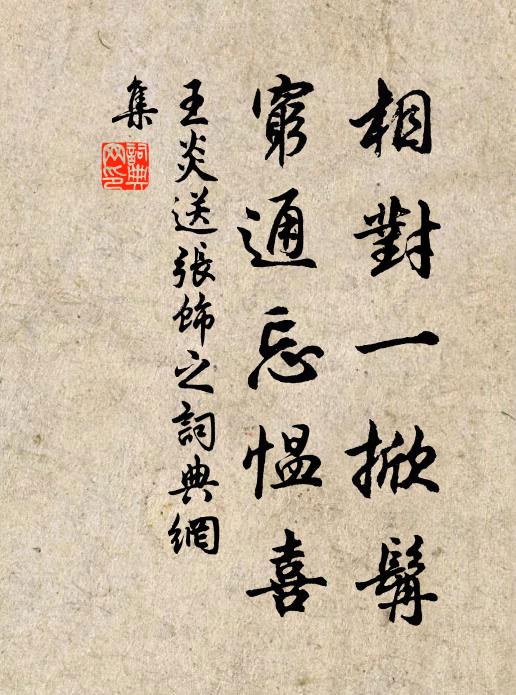 相對一掀髯
窮通忘愠喜
王炎送張飾之詞典網
集
詞典網印